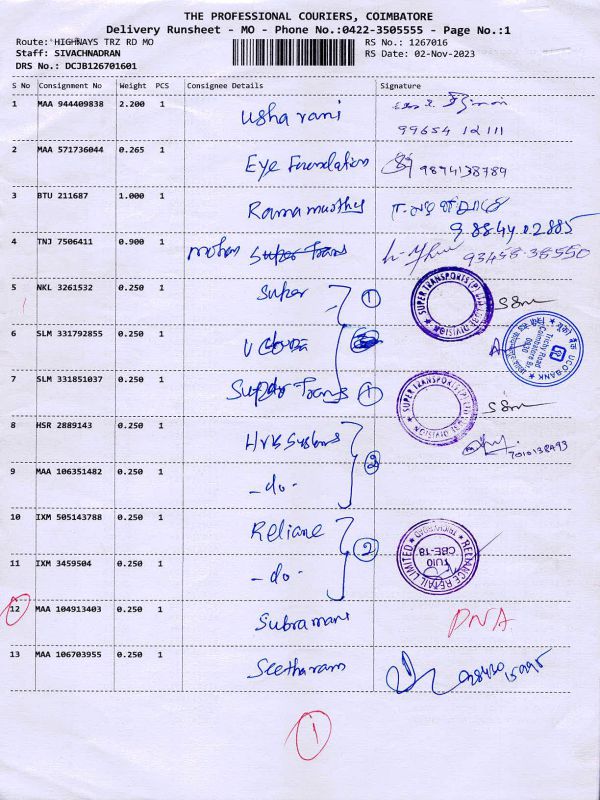 THE PROFESSIONAL COURIERS, COIMBATORE
Delivery Runsheet - MO - Phone No.:0422-3505555 - Page No.:1
Route: HIGHWAYS TRZ RD MO
RS No.: 1267016
Staff: SIVACHNADRAN
RS Date: 02-Nov-2023
DRS No.: DCJB126701601
S No Consignment No Weight PCS Consignee Details Signature
1 MAA 944409838 2.200 1 Usha rani
99654 12111
2 MAA 571736044 0.265 1 Eye Foundation 9894138789
3 BTU 211687 1.000 1 Ramamurthy
98844 02885
4 TNJ 7506411 0.900 1 mohan Super Trans 93458-38550
5 NKL 3261532 0.250 1 Super 1
SUPER TRANSPORTS (P) LTD DIVISION
6 SLM 331792855 0.250 1
UCO BANK
Trichy Road
7 SLM 331851037 0.250 1 Super Trans 1
SUPER TRANSPORTS (P) LTD DIVISION
8 HSR 2889143 0.250 1 Systems
7010138493
2
9 MAA 106351482 0.250 1 -do-
10 IXM 505143788 0.250 1 Reliane
2
RELIANCE RETAIL LIMITED
CBE-18
11 IXM 3459504 0.250 1 -do-
12 MAA 104913403 0.250 1 Subramani PNA
13 MAA 106703955 0.250 1 Seetharam
1